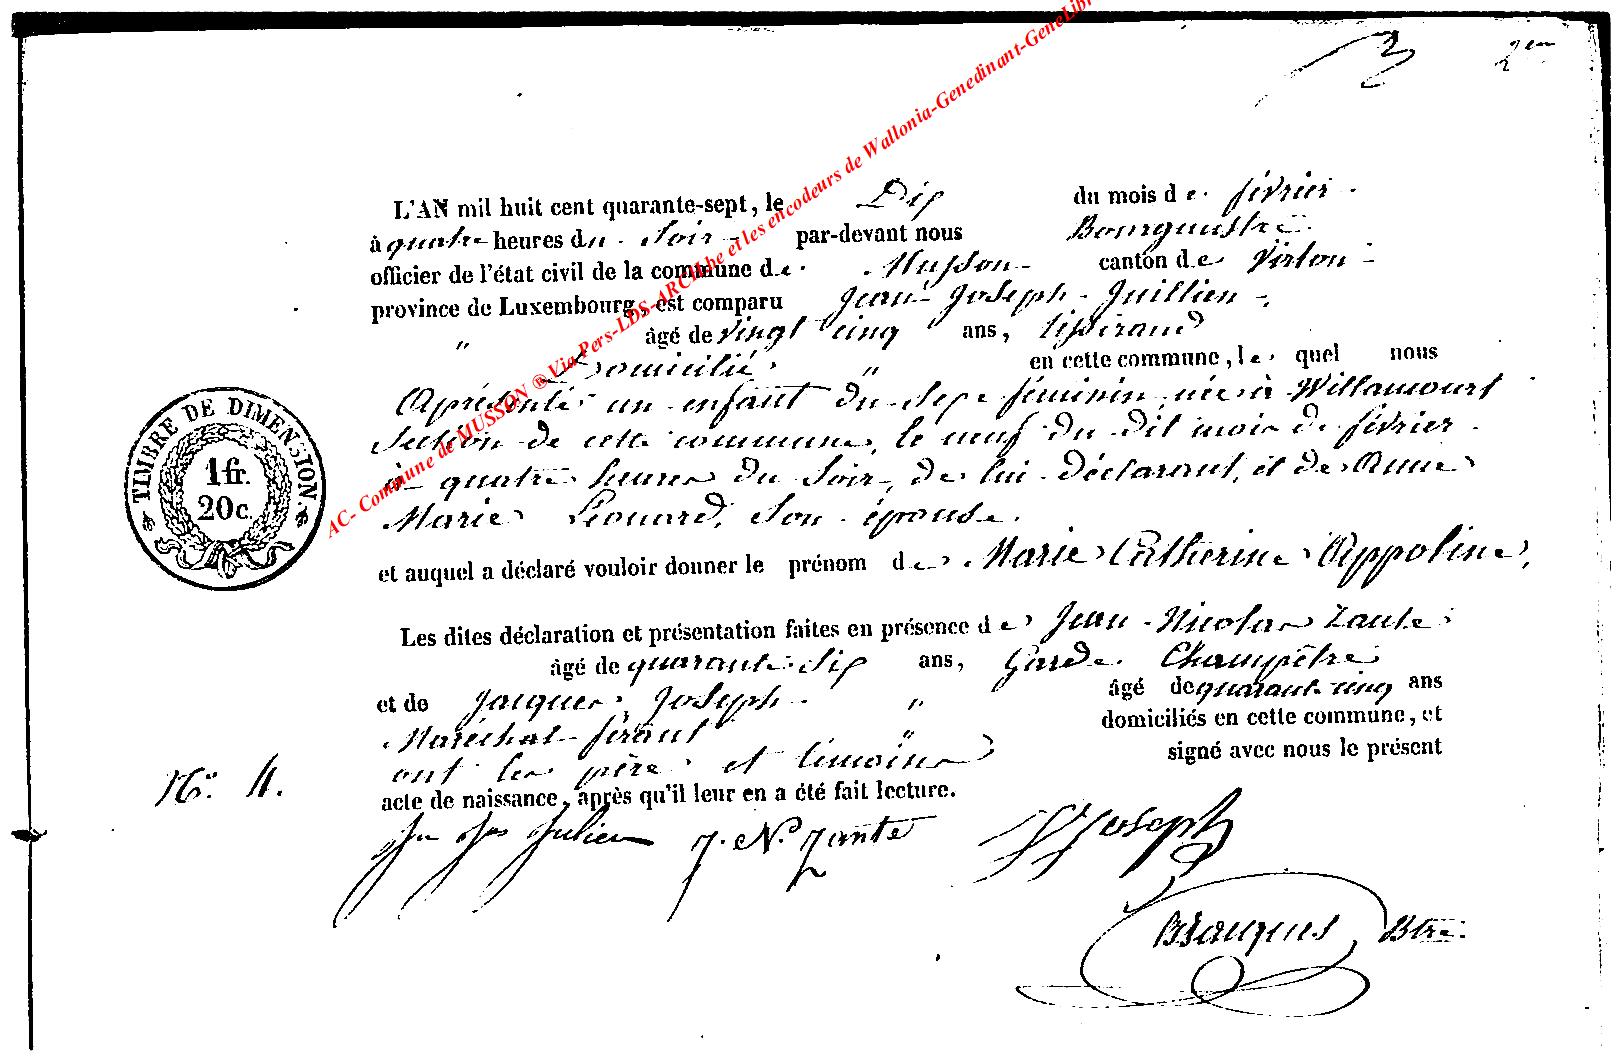 3 2em
L'AN mil huit cent quarante-sept, le Dix du mois de février
à quatre heures du soir par-devant nous Bourguestre
officier de l'état civil de la commune de Musson canton de Virton
province de Luxembourg, est comparu Jean Joseph Juillien
" âgé de vingt cinq ans, tisserand
Domicilié " en cette commune, le quel nous
a présenté un enfant du sexe féminin née à Willancourt
section de cette commune, le neuf du dit mois de février
à quatre heures du soir, de lui déclarant, et de Anne
Marie Léonard, son épouse.
et auquel a déclaré vouloir donner le prénom de Marie Catherine Appoline,
Les dites déclaration et présentation faites en présence de Jean Nicolas Zante
âgé de quarante six ans, Garde Champêtre
et de Jacques Joseph " âgé de quarante cinq ans
Maréchal ferant " domiciliés en cette commune, et
ont les père et témoins signé avec nous le présent
acte de naissance, après qu'il leur en a été fait lecture.
No. 4.
Jn Jos Julien J. N. Zante J Joseph
Btre.
TIMBRE DE DIMENSION.
1 fr.
20 c.
AC- Commune de MUSSON ® Via Pers-LDS-ARCH.be et les encodeurs de Wallonia-Genedinant-GeneLibr